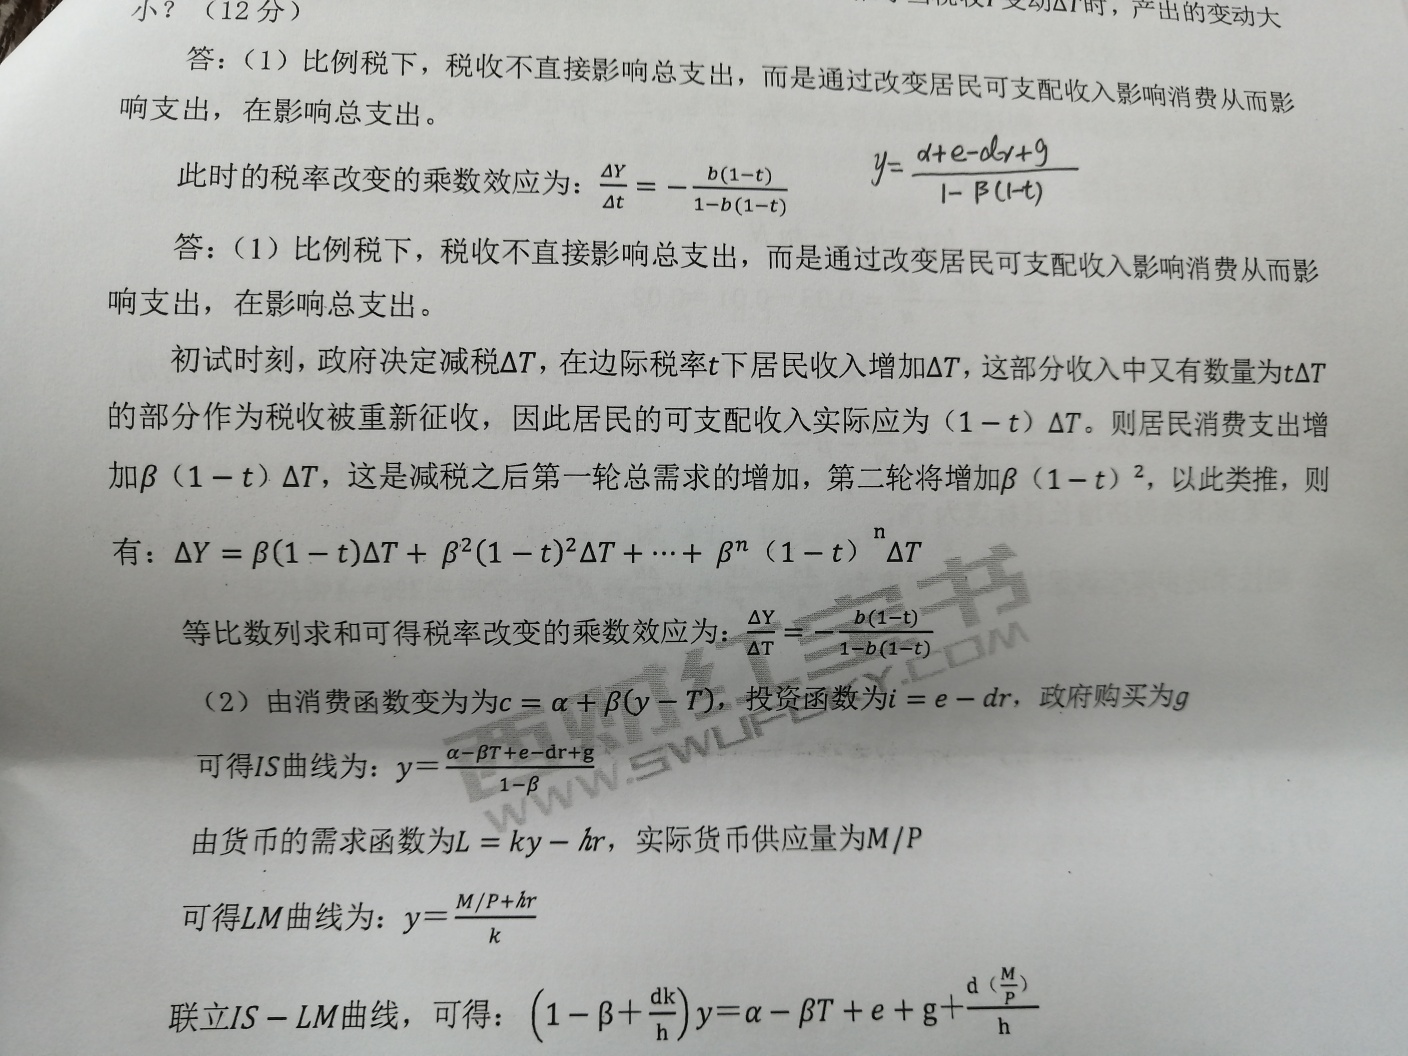 变动ΔT时，产出的变动大
小？（12分）
答：（1）比例税下，税收不直接影响总支出，而是通过改变居民可支配收入影响消费从而影
响支出，在影响总支出。
此时的税率改变的乘数效应为：ΔY/Δt = − b(1−t)/(1−b(1−t))
y= (α+e-dr+g)/(1-β(1-t))
答：（1）比例税下，税收不直接影响总支出，而是通过改变居民可支配收入影响消费从而影
响支出，在影响总支出。
初试时刻，政府决定减税ΔT，在边际税率t下居民收入增加ΔT，这部分收入中又有数量为tΔT
的部分作为税收被重新征收，因此居民的可支配收入实际应为（1－t）ΔT。则居民消费支出增
加β（1－t）ΔT，这是减税之后第一轮总需求的增加，第二轮将增加β（1－t）²，以此类推，则
有：ΔY = β(1 − t)ΔT + β²(1 − t)²ΔT + ⋯ + βⁿ（1 − t）ⁿΔT
等比数列求和可得税率改变的乘数效应为：ΔY/ΔT = − b(1−t)/(1−b(1−t))
（2）由消费函数变为为c = α + β(y − T)，投资函数为i = e − dr，政府购买为g
可得IS曲线为：y＝(α−βT+e−dr+g)/(1−β)
由货币的需求函数为L = ky − hr，实际货币供应量为M/P
可得LM曲线为：y＝(M/P+hr)/k
联立IS − LM曲线，可得：(1 − β + dk/h)y＝α − βT + e + g + d（M/P）/h
西财红宝书
WWW.SWUFEKY.COM